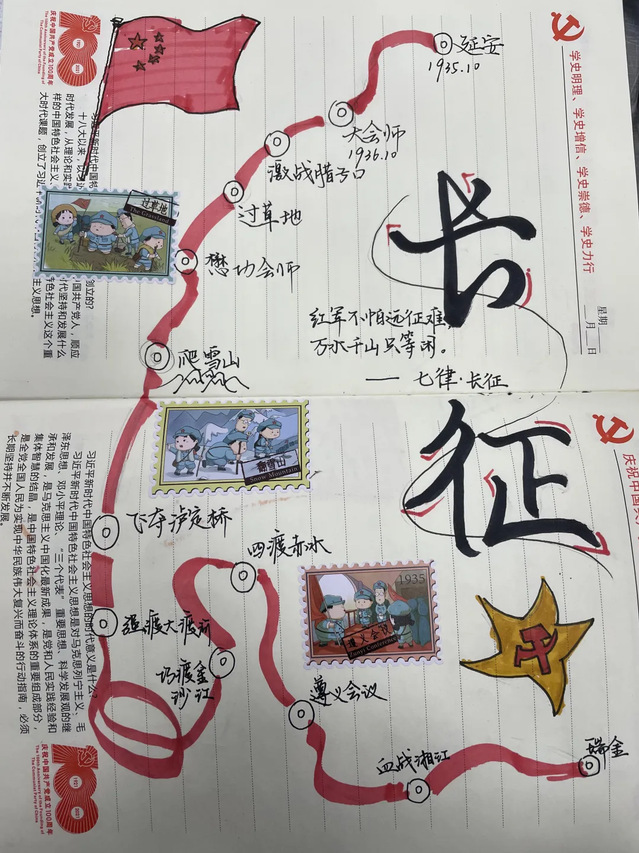 庆祝中国共产党成立100周年
The 100th Anniversary of the Founding of
The Communist Party of China
100
1921
2021
学史明理、学史增信、学史崇德、学史力行
星期
月 日
延安
1935.10
大会师
1936.10
激战腊子口
过草地
懋功会师
爬雪山
过草地
The Grassland
十八大以来,以习
时代发展,从理论和实
样的中国特色社会主义、
大时代课题,创立了习近
创立的?
国共产党人,顺应
坚持和发展什么
色社会主义这个重
主义思想。
长
红军不怕远征难,
万水千山只等闲。
——七律·长征
征
爬雪山
Snow Mountain
飞夺泸定桥
强渡大渡河
巧渡金
沙江
四渡赤水
1935
遵义会议
Zunyi Conference
遵义会议
血战湘江
瑞金
习近平新时代中国特色社会主义思想的时代意义是什么?
习近平新时代中国特色社会主义思想是对马克思列宁主义、毛
泽东思想、邓小平理论、“三个代表”重要思想、科学发展观的继
承和发展,是马克思主义中国化最新成果,是党和人民实践经验和
集体智慧的结晶,是中国特色社会主义理论体系的重要组成部分,
是全党全国人民为实现中华民族伟大复兴而奋斗的行动指南,必须
长期坚持并不断发展。
庆祝中国共产党成立100周年
The 100th Anniversary of the Founding of
The Communist Party of China
100
1921
2021
庆祝中国共